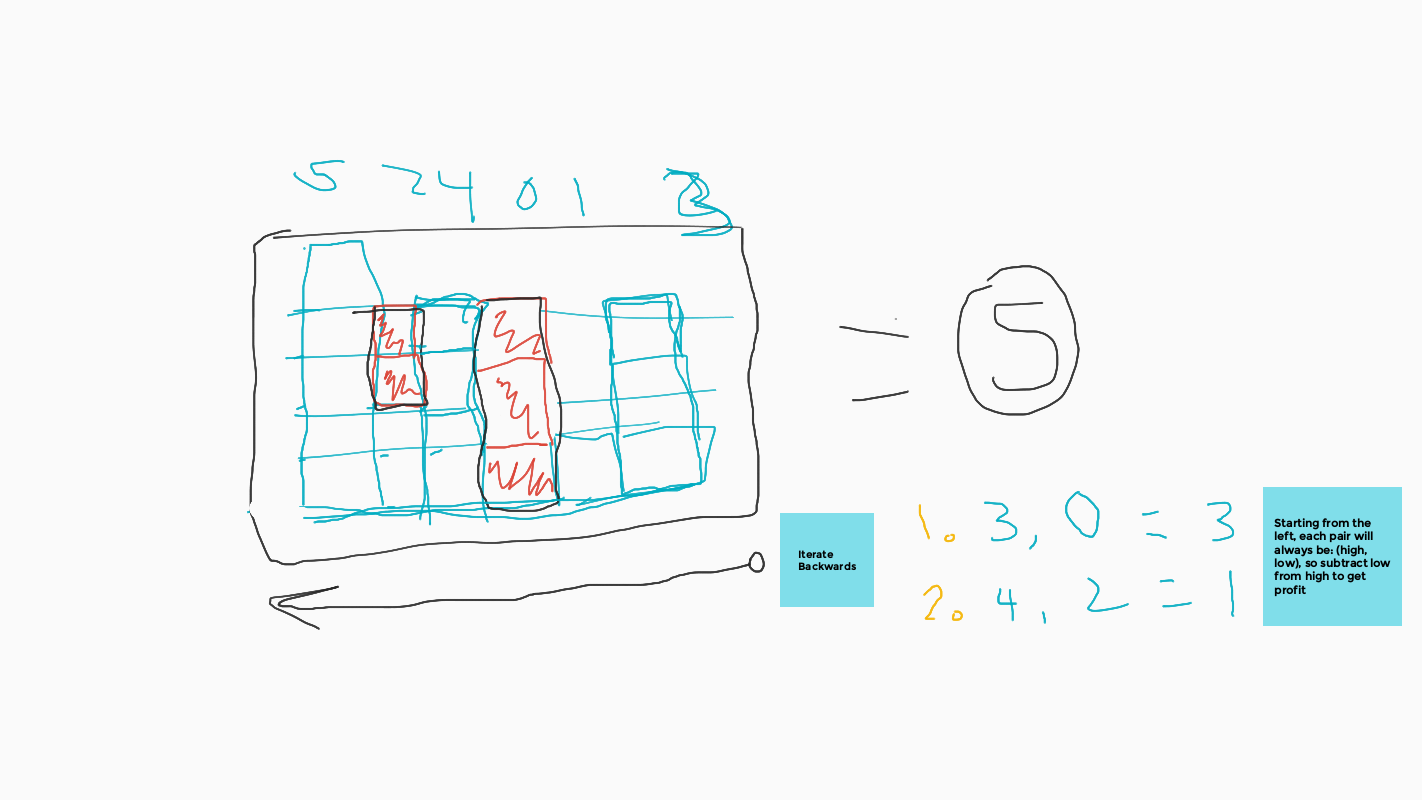 5 2 4 0 1 3
= 5
Iterate
Backwards
1. 3, 0 = 3
2. 4, 2 = 1
Starting from the
left, each pair will
always be: (high,
low), so subtract low
from high to get
profit